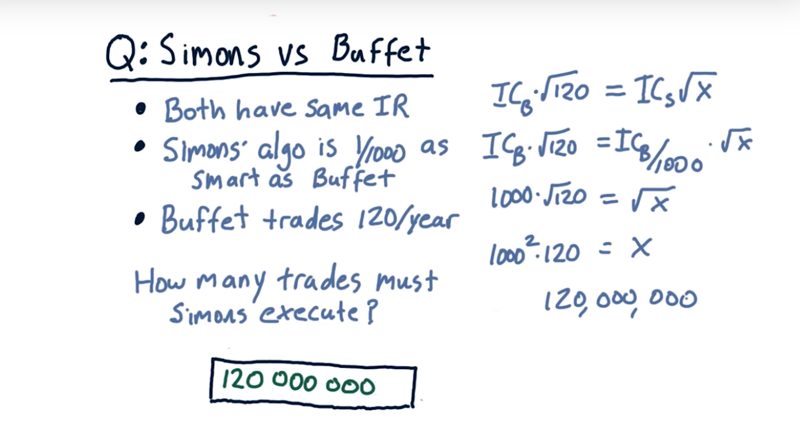 Q: Simons vs Buffet
• Both have same IR
• Simons' algo is 1/1000 as
smart as Buffet
• Buffet trades 120/year
How many trades must
Simons execute?
120 000 000
IC_B·√120 = IC_S√x
IC_B·√120 = IC_B/1000 · √x
1000·√120 = √x
1000²·120 = x
120,000,000